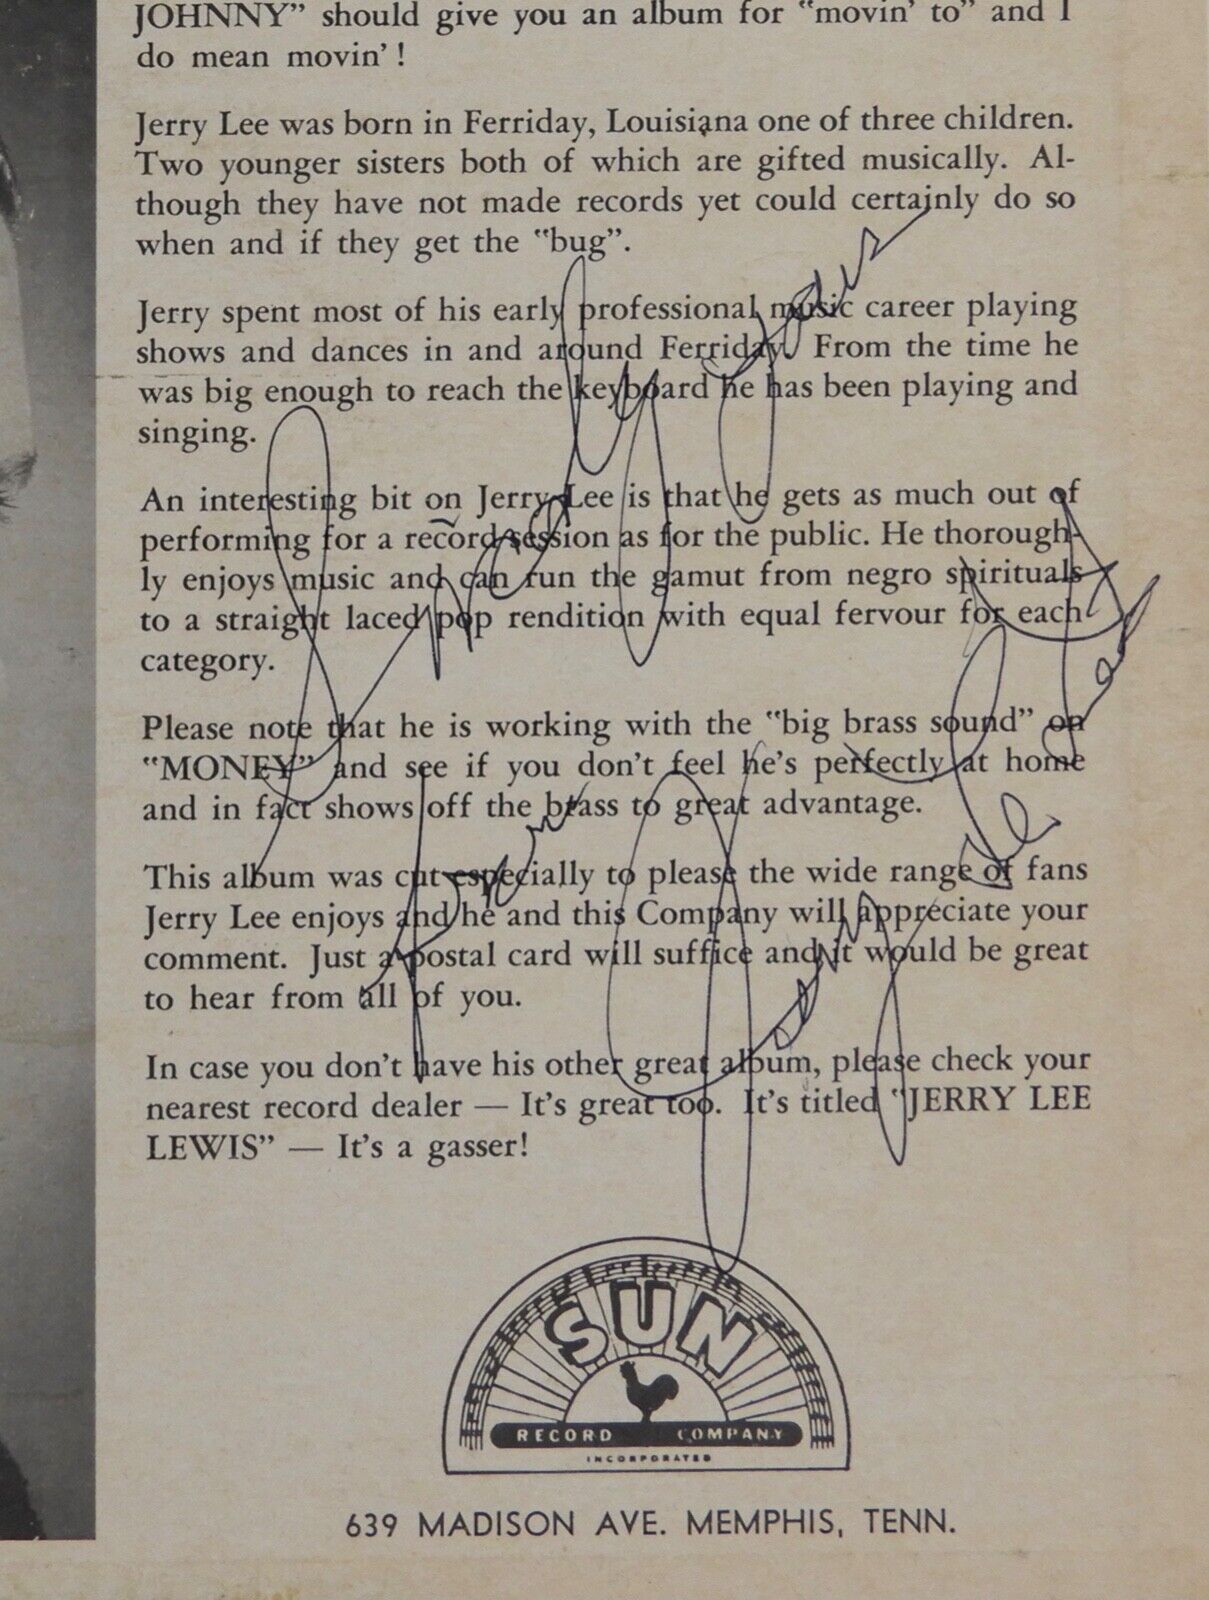 JOHNNY” should give you an album for “movin' to” and I
do mean movin' !
Jerry Lee was born in Ferriday, Louisiana one of three children.
Two younger sisters both of which are gifted musically. Al-
though they have not made records yet could certainly do so
when and if they get the “bug”.
Jerry spent most of his early professional music career playing
shows and dances in and around Ferriday. From the time he
was big enough to reach the keyboard he has been playing and
singing.
An interesting bit on Jerry Lee is that he gets as much out of
performing for a record session as for the public. He thorough-
ly enjoys music and can run the gamut from negro spirituals
to a straight laced pop rendition with equal fervour for each
category.
Please note that he is working with the “big brass sound” on
“MONEY” and see if you don't feel he's perfectly at home
and in fact shows off the brass to great advantage.
This album was cut especially to please the wide range of fans
Jerry Lee enjoys and he and this Company will appreciate your
comment. Just a postal card will suffice and it would be great
to hear from all of you.
In case you don't have his other great album, please check your
nearest record dealer — It's great too. It's titled “JERRY LEE
LEWIS” — It's a gasser!
SUN
RECORD COMPANY
INCORPORATED
639 MADISON AVE. MEMPHIS, TENN.